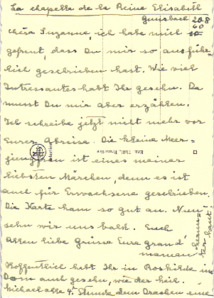 La chapelle de la Reine Elisabeth
Gunsbach 20.8
60
Chère Suzanne, ich habe mich
gefreut, dass Du mir so ausführ-
lich geschrieben hast. Wie viel
Interessantes habt Ihr gesehen. Da
musst Du mir aber erzählen.
Ich schreibe jetzt nicht mehr vor
Eurer Abreise. Die kleine Meer-
jungfrau ist eines meiner
liebsten Märchen, denn es ist
auch für Erwachsene geschrieben.
Die Karte kam so gut an. Nun
sehn wir uns bald. Euch
Allen liebe Grüsse Eure grand'
maman
Hoffentlich habt Ihr in Roskilde im
Dom auch gesehn, wie der hl.